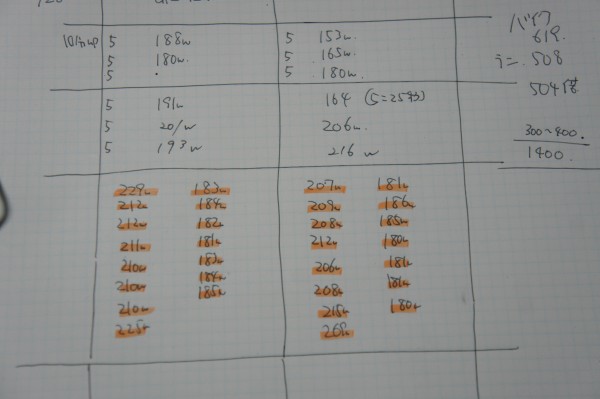 5 188w 5 153w.
5 180w. 5 165w.
5 . 5 180w.
5 191w 164 (5=25秒)
5 201w 206w.
5 193w 216w
バイク
619.
ラン. 508
300~400.
1400.
229w 183w 207w 181w
212w 184w 209w 186w
212w 182w 208w 185w
211w 181w 212w 180w
210w 183w 206w 181w
210w 184w 208w 181w
185w
210w 215w 180w
225w